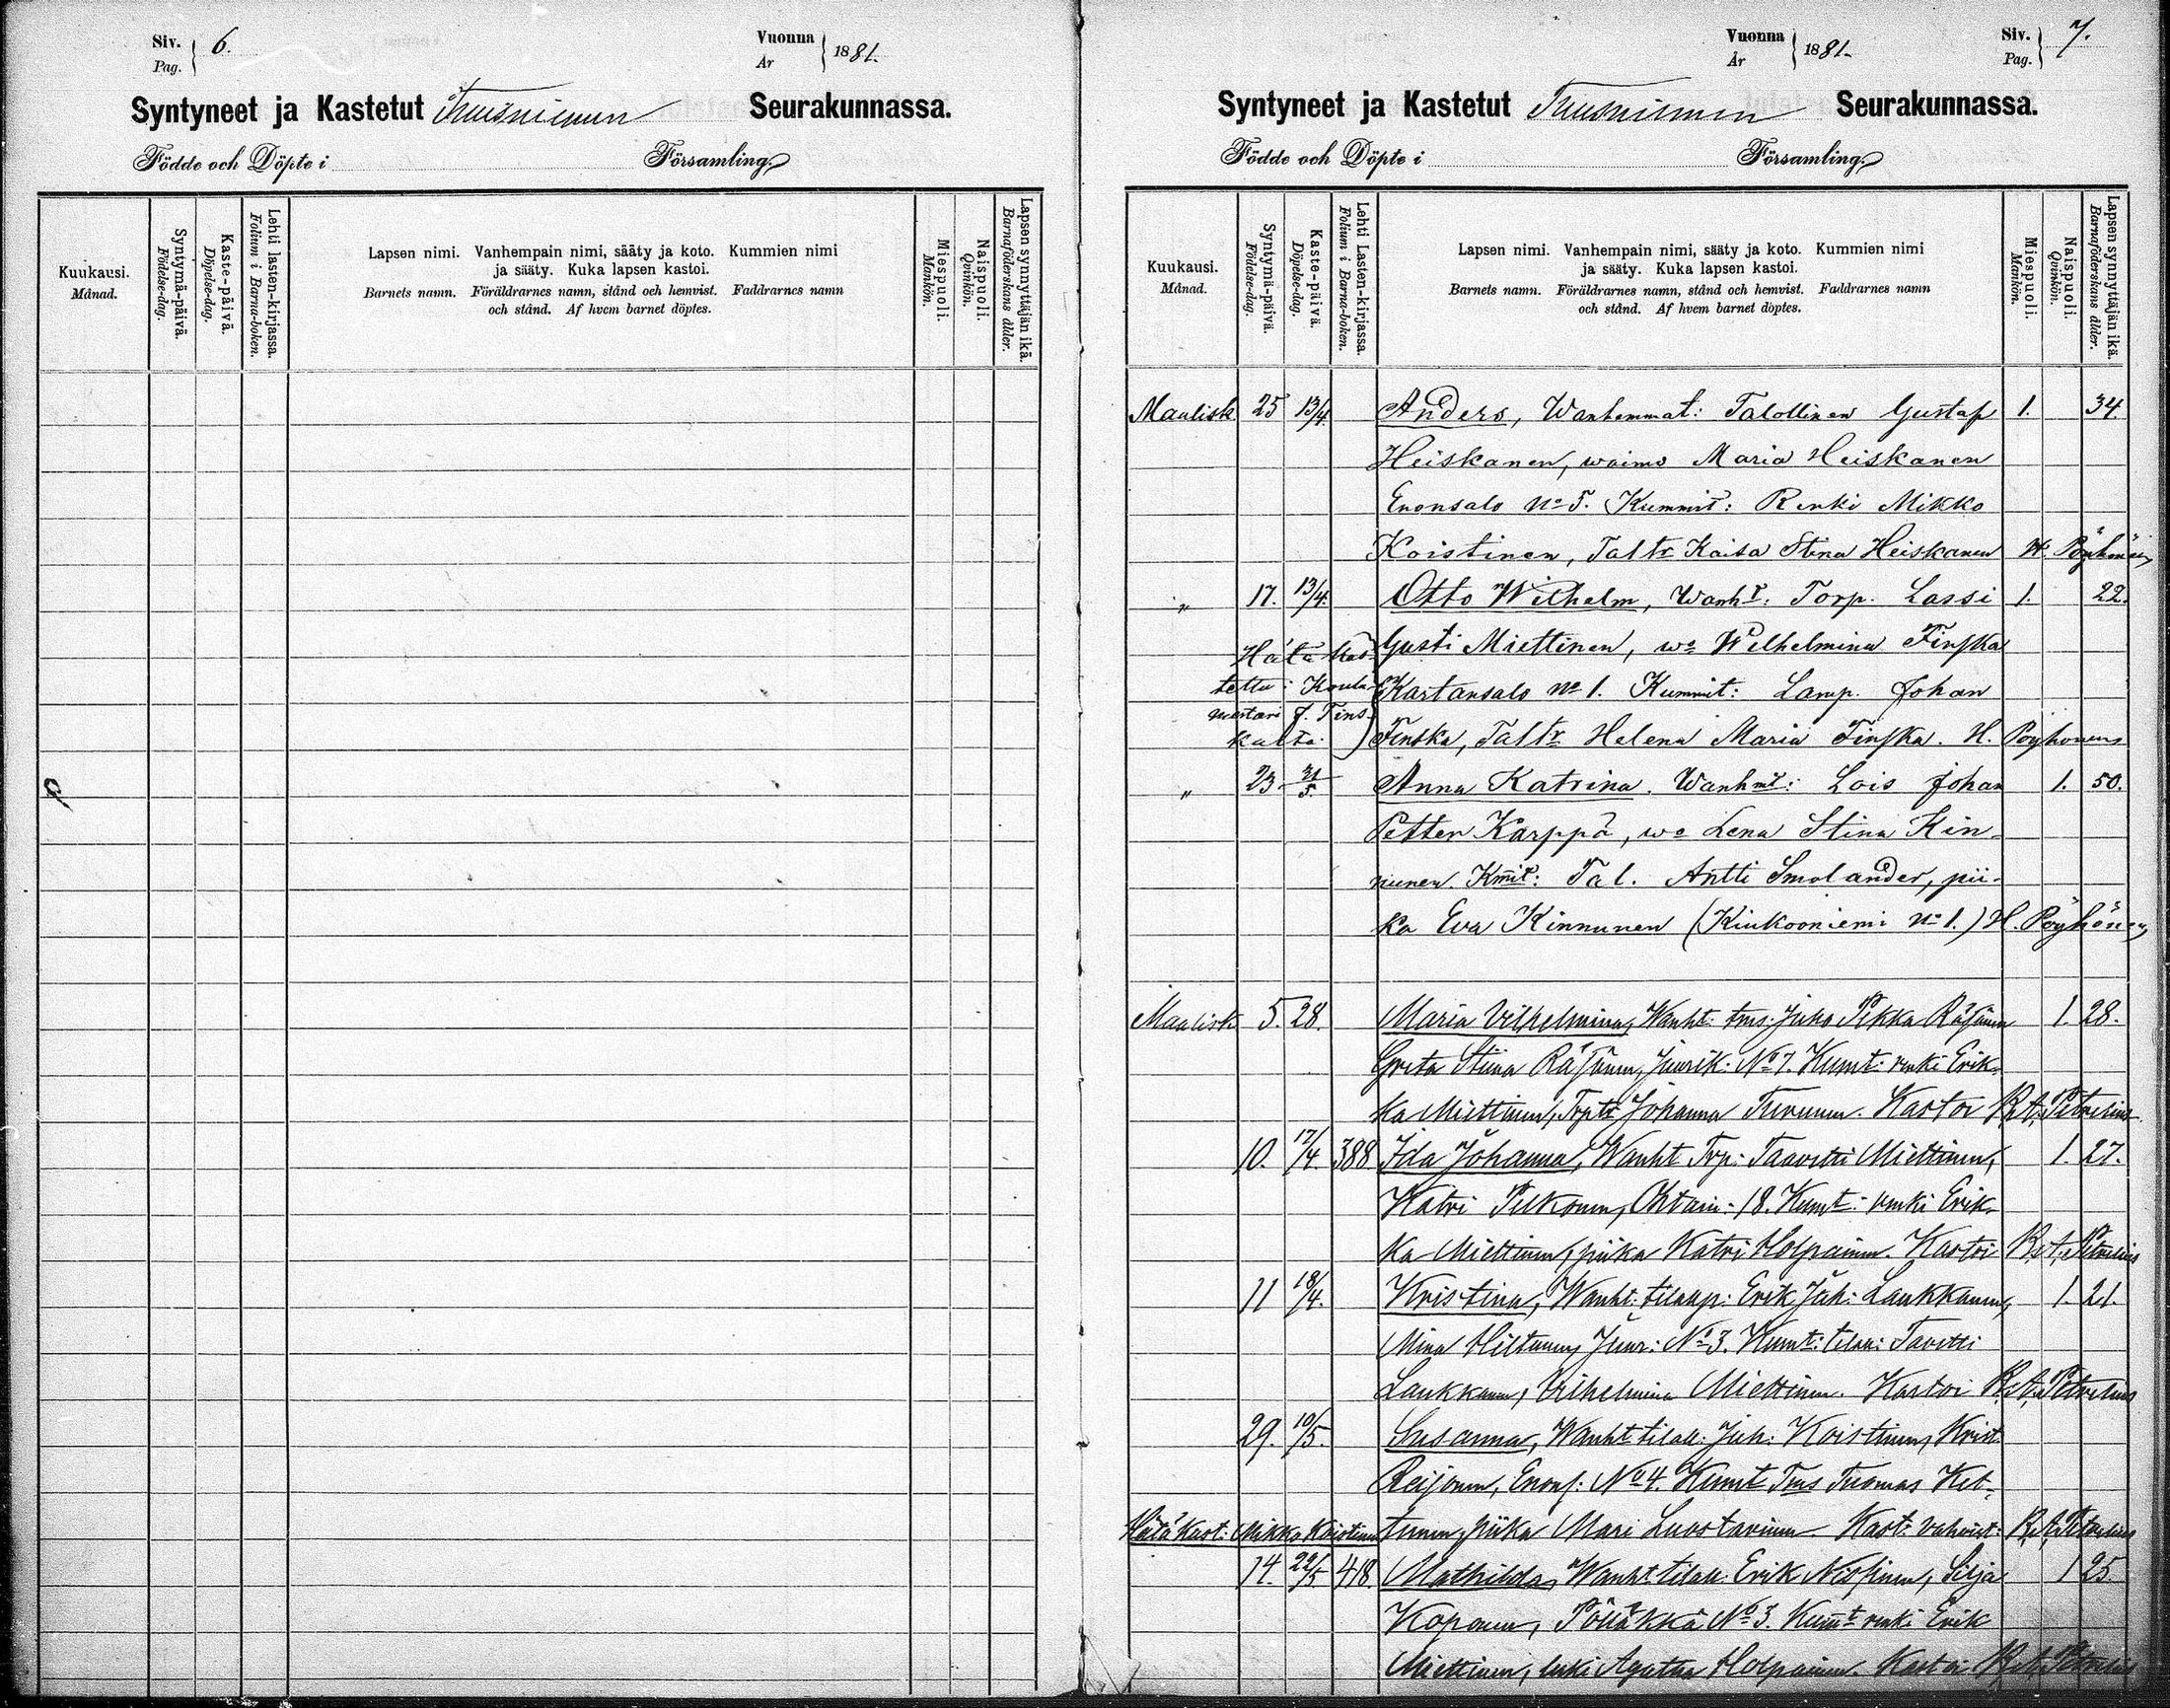 Siv. Pag. 6.
Vuonna År 1881.
Syntyneet ja Kastetut Tuusniemen Seurakunnassa.
Födde och Döpte i Församling.
Kuukausi. Månad.
Syntymä-päivä. Födelse-dag.
Kaste-päivä. Döpelse-dag.
Lehti lasten-kirjassa. Folium i Barna-boken.
Lapsen nimi. Vanhempain nimi, sääty ja koto. Kummien nimi
ja sääty. Kuka lapsen kastoi.
Barnets namn. Föräldrarnes namn, stånd och hemvist. Faddrarnes namn
och stånd. Af hvem barnet döptes.
Miespuoli. Mankön.
Naispuoli. Qvinkön.
Lapsen synnyttäjän ikä. Barnaföderskans ålder.
Vuonna År 1881.
Siv. Pag. 7.
Syntyneet ja Kastetut Tuusniemen Seurakunnassa.
Födde och Döpte i Församling.
Kuukausi. Månad.
Syntymä-päivä. Födelse-dag.
Kaste-päivä. Döpelse-dag.
Lehti Lasten-kirjassa. Folium i Barna-boken.
Lapsen nimi. Vanhempain nimi, sääty ja koto. Kummien nimi
ja sääty. Kuka lapsen kastoi.
Barnets namn. Föräldrarnes namn, stånd och hemvist. Faddrarnes namn
och stånd. Af hvem barnet döptes.
Miespuoli. Mankön.
Naispuoli. Qvinkön.
Lapsen synnyttäjän ikä. Barnaföderskans ålder.
Maalisk. 25 13/4 Anders, Wanhemmat: Talollinen Gustaf 1. 34.
Heiskanen, waimo Maria Heiskanen
Enonsalo No 5. Kummit: Renki Mikko
Koistinen, Taltr Kaisa Stina Heiskanen H. Pöyhönen
" 17. 13/4. Otto Wilhelm, Wanht: Torp. Lassi 1. 22.
Hätä kas- Gusti Miettinen, wo Wilhelmina Finska
tettu: Koulu- Kartansalo No 1. Kummit: Lamp. Johan
mestari J. Fins-
kalta.) Finska, Taltr Helena Maria Finska. H. Pöyhönen
" 23 31/5. Anna Katrina. Wanhmt: Lois Johan 1. 50.
Petter Karppa, wo Lena Stina Kin-
nunen. Kmit: Tal. Antti Smolander, pii-
ka Eva Kinnunen (Kiukooniemi No 1.) H. Pöyhönen
Maalisk 5. 28. Maria Vilhelmina, Wanht: tms. Juho Pekka Räsänen 1. 28.
Greta Stiina Räsänen, Juurik: No 7. Kumt: renki Erik-
ka Miettinen, Trptr Johanna Turunen. Kastoi R. A. Petrelius
10. 17/4. 388 Ida Johanna, Wanht Trp: Taavetti Miettinen, 1. 27.
Katri Pelkonen, : 18. Kumt: renki Erik-
ka Miettinen, piika Katri Holpainen. Kastoi R. A. Petrelius
11 18/4. Kristina, Wanht: Erik Joh: Laukkanen, 1. 21.
Mina Hiltunen, Juur: No 3. Kumt: tilal: Tavetti
Laukkanen, Vilhelmina Miettinen. Kastoi R. A. Petrelius
29. 10/5. Susanna, Wanht tilall: Juh: Koistinen, Krist.
Reijonen, Enons: No 4. Kumt Tms Tuomas Ket-
Hätä Kast: Mikko Koistinen tunen, piika Mari Luostarinen Kast: vahvist: R. A. Petrelius
14. 22/5 418. Mathilda, Wanht tilall: Erik Nissinen, Silja 1 25.
Koponen, Pölläkkä No 3. Kumt renki Erik
Miettinen, leski Agatha Holpainen. Kastoi R. A. Petrelius